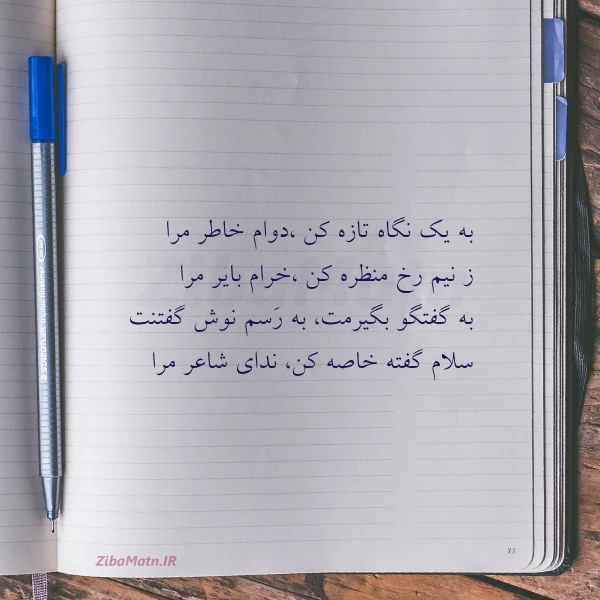 به یک نگاه تازه کن ،دوام خاطر مرا
ز نیم رخ منظره کن ،خرام بایر مرا
به گفتگو بگیرمت، به رَسم نوش گفتنت
سلام گفته خاصه کن، ندای شاعر مرا
77
ZibaMatn.IR